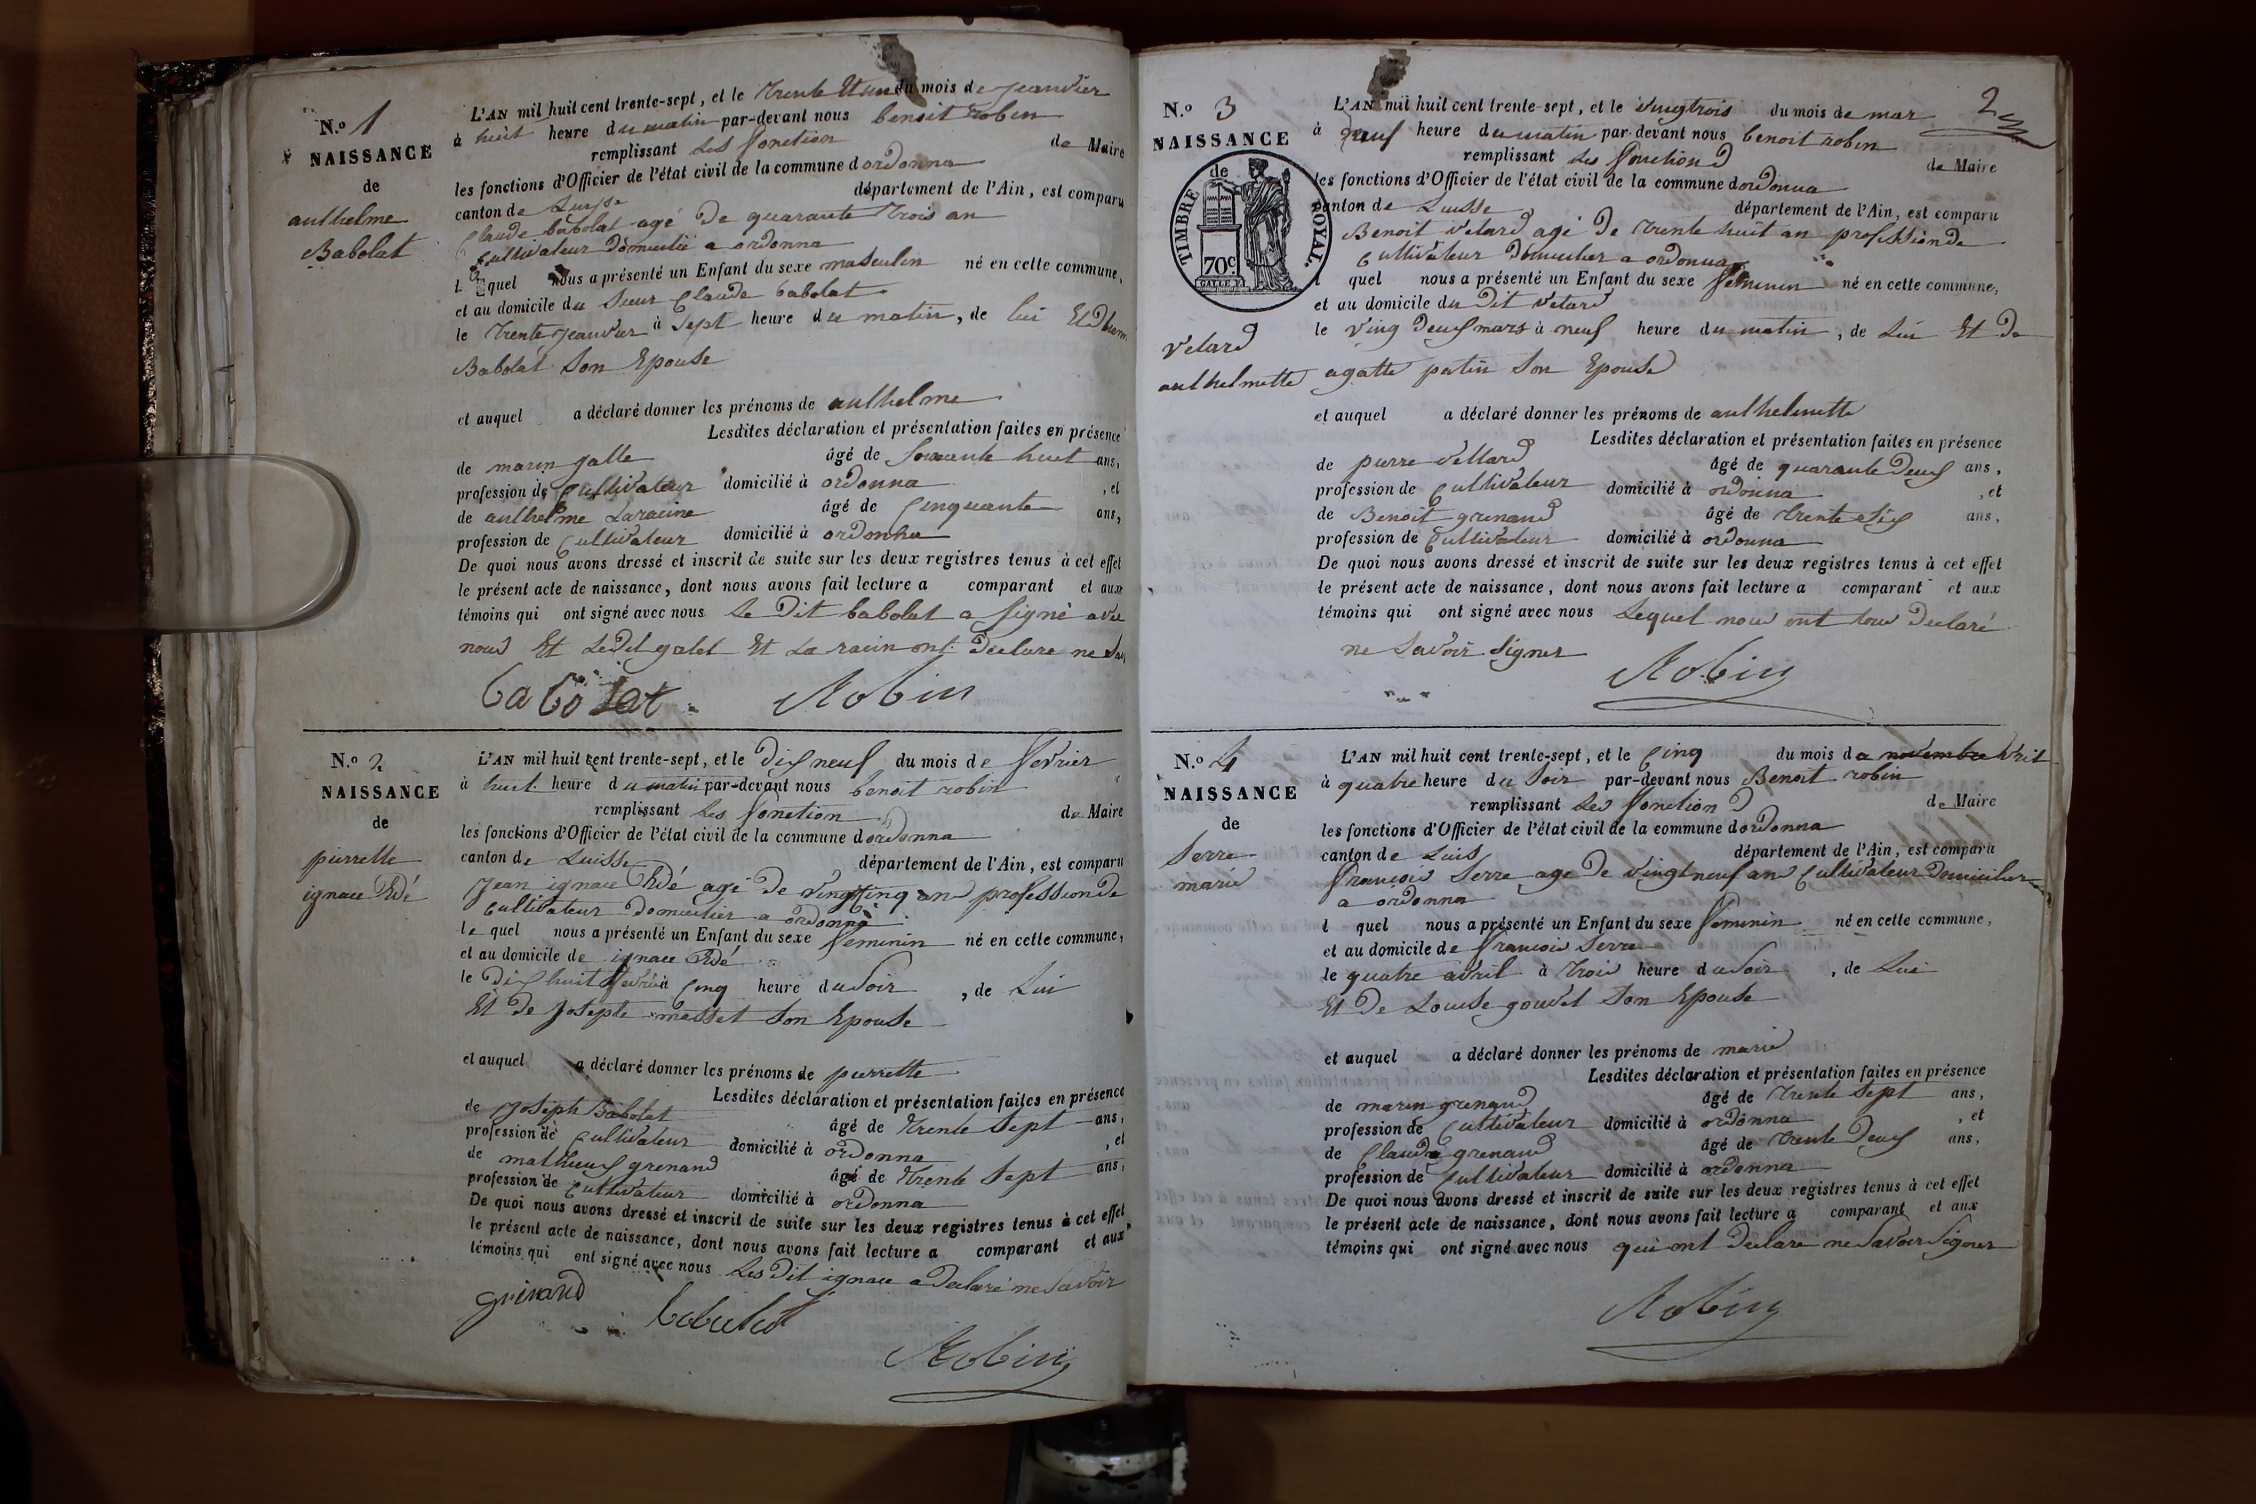 N.o 1
NAISSANCE
de
anthelme
Babolat
L'AN mil huit cent trente-sept, et le trente et un du mois de jeanvier
à huit heure du matin par-devant nous benoit robin
remplissant Les fonction de Maire
les fonctions d'Officier de l'état civil de la commune dordonna
canton de département de l'Ain, est comparu
Claude babolat agé De quarante trois an
Cultivateur Domicilié a ordonna
l quel nous a présenté un Enfant du sexe masculin né en cette commune,
et au domicile du Sieur Claude babolat
le trente jeanvier à Sept heure du matin, de lui Et D
Babolat Son Epouse
et auquel a déclaré donner les prénoms de anthelme
Lesdites déclaration et présentation faites en présence
de marin âgé de Soixante huit ans,
profession de Cultivateur domicilié à ordonna , et
de anthelme Laracine âgé de Cinquante ans,
profession de Cultivateur domicilié à ordonna
De quoi nous avons dressé et inscrit de suite sur les deux registres tenus à cet effet
le présent acte de naissance, dont nous avons fait lecture a comparant et aux
témoins qui ont signé avec nous Le Dit babolat a Signé avec
nous Et Ledit galet Et La racin ont Declare ne
babolat Robin
N.o 2
NAISSANCE
de
pierrette
ignace
L'AN mil huit cent trente-sept, et le Dix neuf du mois de fevrier
à huit heure du matin par-devant nous benoit robin
remplissant Les fonction de Maire
les fonctions d'Officier de l'état civil de la commune dordonna
canton de Luisse département de l'Ain, est comparu
Jean ignace agé De vingt cinq an profession De
Cultivateur Domicilier a ordonna
le quel nous a présenté un Enfant du sexe feminin né en cette commune,
et au domicile de ignace
le Dix huit fevrier à Cinq heure du Soir , de Lui
Et De Josepte masset Son Epouse
et auquel a déclaré donner les prénoms de pierrette
Lesdites déclaration et présentation faites en présence
de Joseph Babolat âgé de trente Sept ans,
profession de Cultivateur domicilié à ordonna , et
de mathieux grenand âgé de trente Sept ans,
profession de Cultivateur domicilié à ordonna
De quoi nous avons dressé et inscrit de suite sur les deux registres tenus à cet effet
le présent acte de naissance, dont nous avons fait lecture a comparant et aux
témoins qui ont signé avec nous Les Dit ignace a Declaré ne Savoir
grinand babolat
Robin
2
N.o 3
NAISSANCE
TIMBRE ROYAL.
de
70c.
velard
anthelmette
L'AN mil huit cent trente-sept, et le vingtrois du mois de mar
à neuf heure du matin par-devant nous benoit robin
remplissant Les fonctiond de Maire
les fonctions d'Officier de l'état civil de la commune dordonna
canton de Luisse département de l'Ain, est comparu
Benoit velard agé De trente huit an profession De
Cultivateur Domicilier a ordonna
l quel nous a présenté un Enfant du sexe feminin né en cette commune,
et au domicile du Dit velard
le ving Deux mars à neuf heure du matin , de Lui Et De
agatte patin Son Epouse
et auquel a déclaré donner les prénoms de anthelmette
Lesdites déclaration et présentation faites en présence
de pierre vellard âgé de quarante Deux ans,
profession de Cultivateur domicilié à ordonna , et
de Benoit grenand âgé de trente Six ans,
profession de Cultivateur domicilié à ordonna
De quoi nous avons dressé et inscrit de suite sur les deux registres tenus à cet effet
le présent acte de naissance, dont nous avons fait lecture a comparant et aux
témoins qui ont signé avec nous Lequel nous ont tous Declaré
ne Savoir Signer
Robin
N.o 4
NAISSANCE
de
Serre
marie
L'AN mil huit cent trente-sept, et le Cinq du mois da novembre vril
à quatre heure du Soir par-devant nous Benoit robin
remplissant Les fonction D de Maire
les fonctions d'Officier de l'état civil de la commune dordonna
canton de Luis département de l'Ain, est comparu
francois Serre age De vingt neuf an Cultivateur Domicilier
a ordonna
l quel nous a présenté un Enfant du sexe feminin né en cette commune,
et au domicile de francois Serre
le quatre avril à trois heure du Soir , de Lui
Et De Louise gouvet Son Epouse
et auquel a déclaré donner les prénoms de marie
Lesdites déclaration et présentation faites en présence
de marin grenand âgé de trente Sept ans,
profession de Cultivateur domicilié à ordonna , et
de Claude grenand âgé de trente Deux ans,
profession de Cultivateur domicilié à ordonna
De quoi nous avons dressé et inscrit de suite sur les deux registres tenus à cet effet
le présent acte de naissance, dont nous avons fait lecture a comparant et aux
témoins qui ont signé avec nous qui ont Declaré ne Savoir Signer
Robin